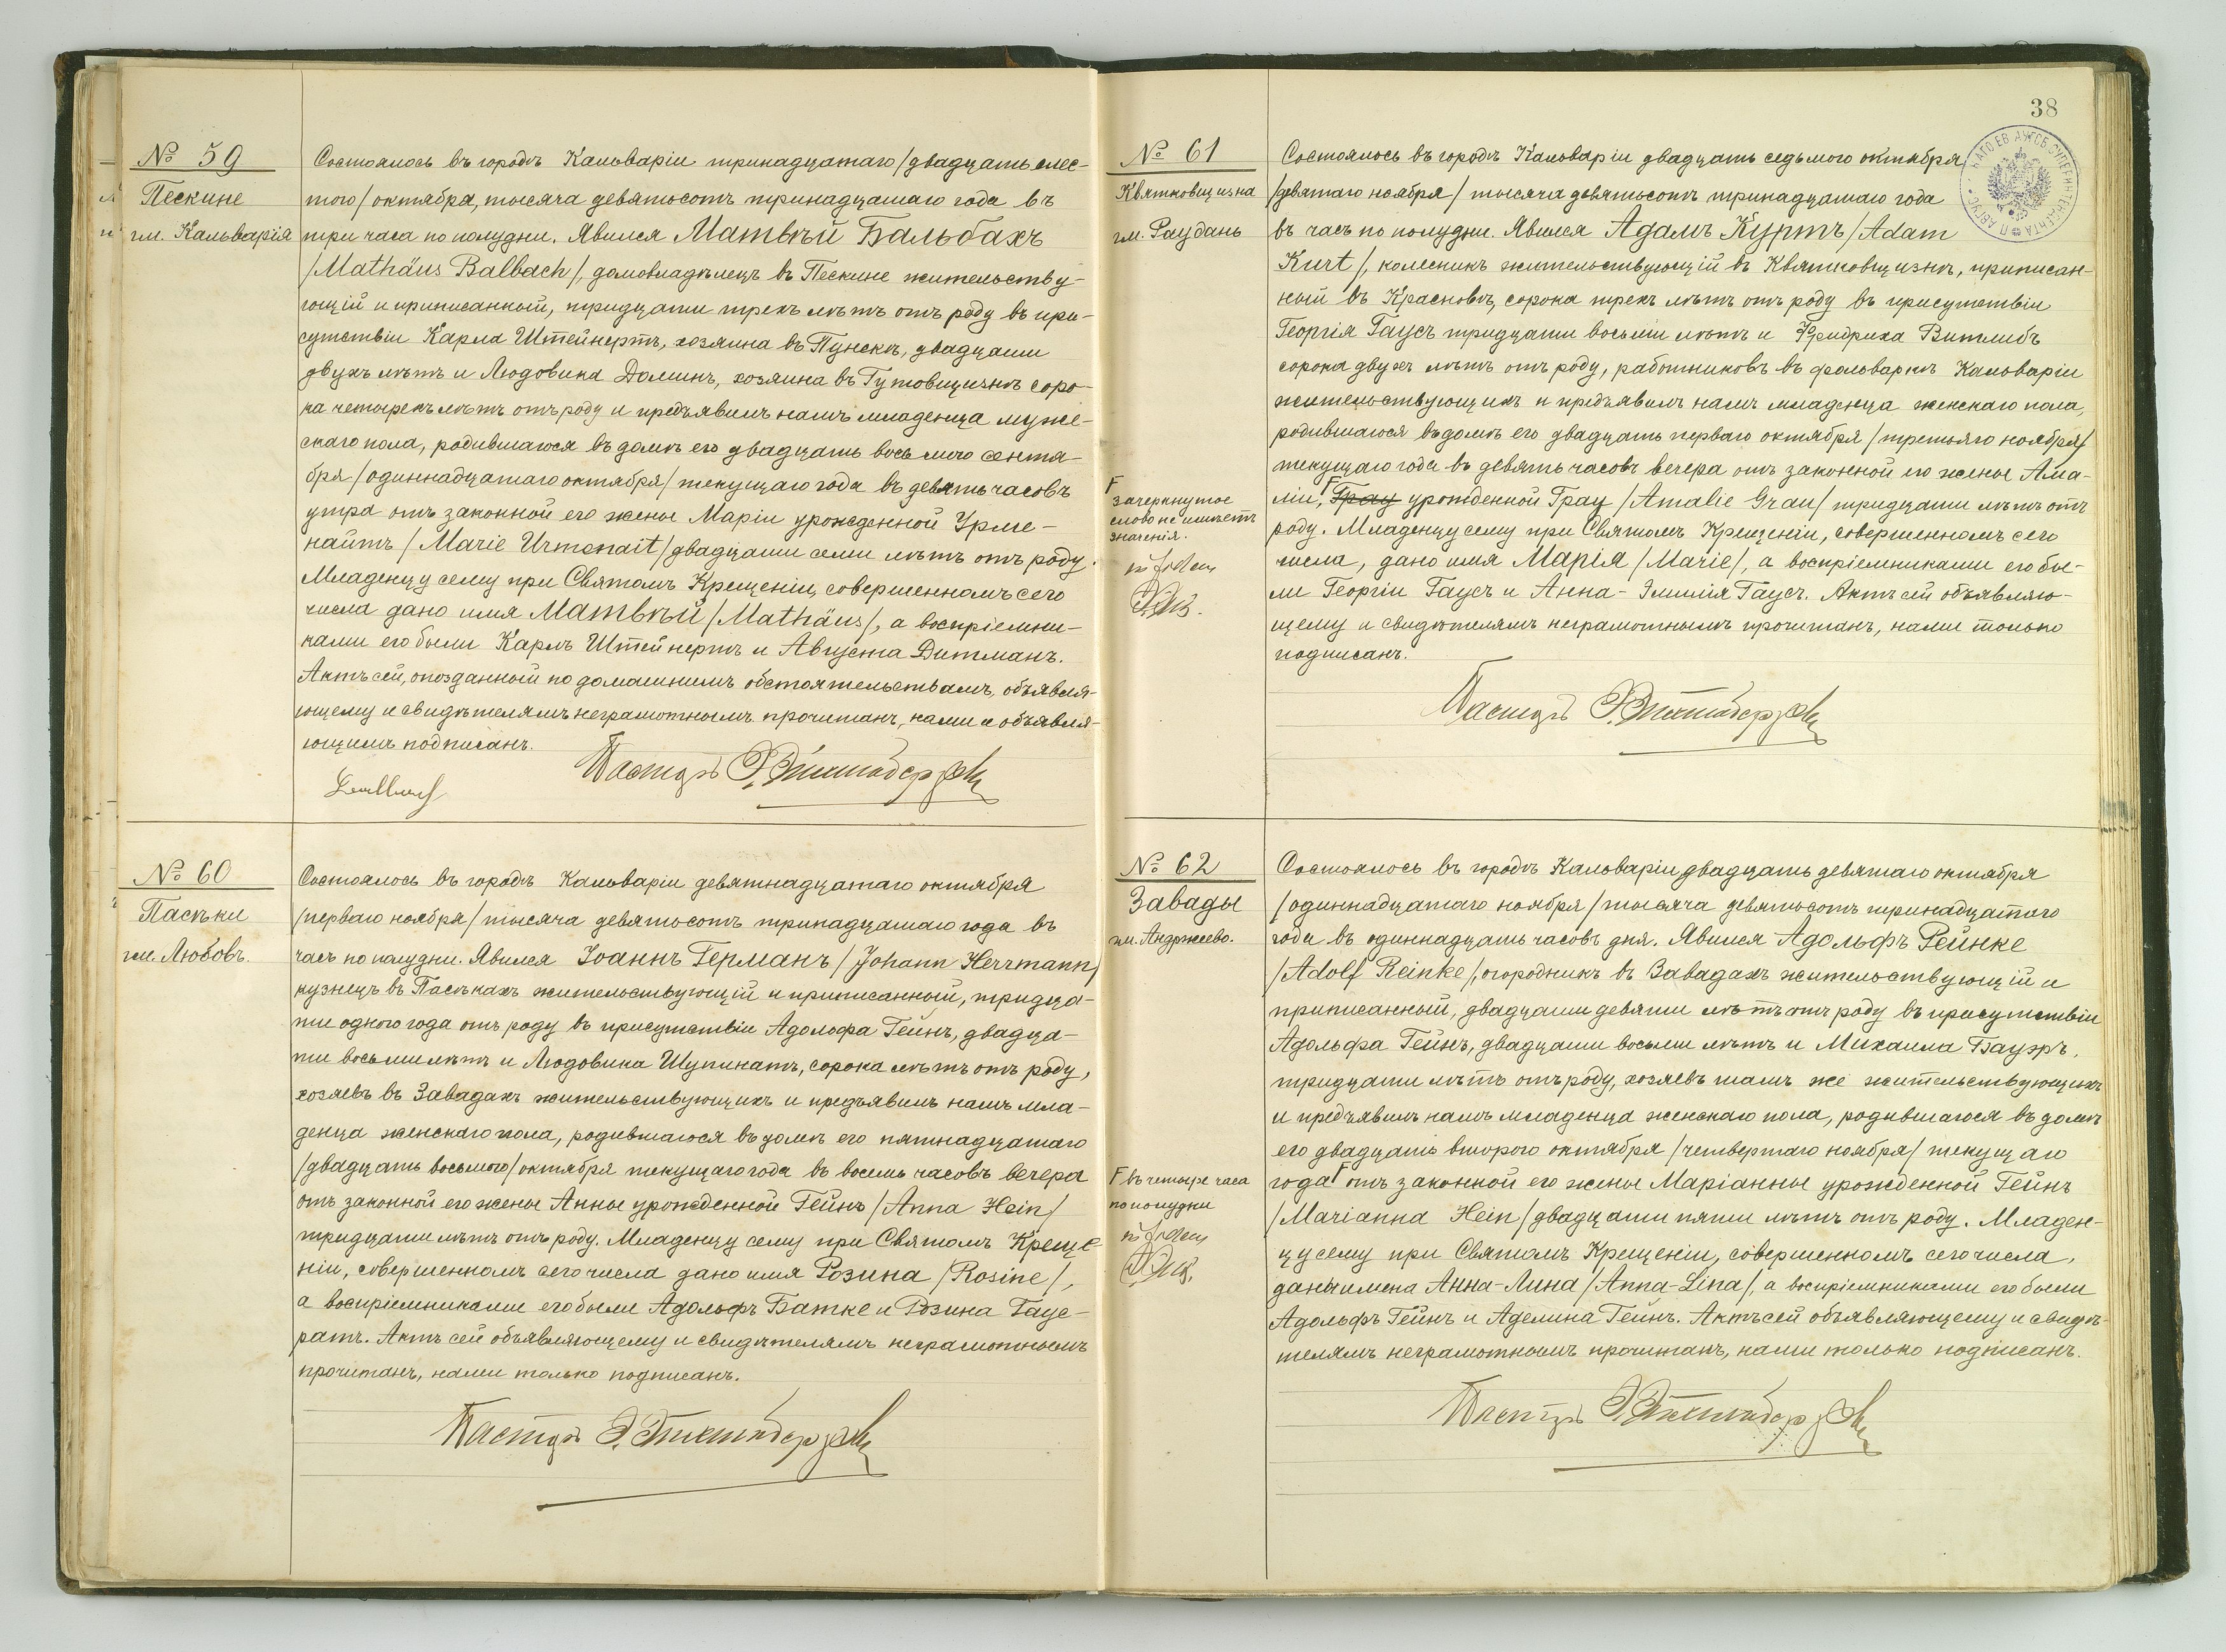 № 59
Пескине
гм. Кальварія
Состоялось въ городѣ Кальваріи тринадцатаго /двадцать шес-
того/ октября, тысяча девятьсотъ тринадцатаго года въ
три часа по полудни. Явился Матвѣй Бальбахъ
/Mathäus Balbach/, домовладѣлецъ въ Пескине жительству-
ющій и приписанный, тридцати трехъ лѣтъ отъ роду въ при-
сутствіи Карла Штейнертъ, хозяина въ Пунскѣ, двадцати
двухъ лѣтъ и Людовика Доминъ, хозяина въ Гутовщизнѣ соро-
ка четырехъ лѣтъ отъ роду и предъявилъ намъ младенца муже-
скаго пола, родившагося въ домѣ его двадцать восьмого сентя-
бря /одиннадцатаго октября/ текущаго года въ девять часовъ
утра отъ законной его жены Маріи урожденной Урме-
найтъ /Marie Urmenait/ двадцати семи лѣтъ отъ роду.
Младенцу сему при Святомъ Крещеніи, совершенномъ сего
числа дано имя Матвѣй /Mathäus/, а воспріемни-
ками его были Карлъ Штейнертъ и Августа Дитманъ.
Актъ сей, опозданный по домашнимъ обстоятельствамъ, объявля-
ющему и свидѣтелямъ неграмотнымъ прочитанъ, нами и объявля-
ющимъ подписанъ.
Пасторъ
№ 60
Пасѣки
гм. Любовъ.
Состоялось въ городѣ Кальваріи девятнадцатаго октября
/перваго ноября/ тысяча девятьсотъ тринадцатаго года въ
часъ по полудни. Явился Іоаннъ Германъ /Johann Herrmann/
кузнецъ въ Пасѣкахъ жительствующій и приписанный, тридца-
ти одного года отъ роду въ присутствіи Адольфа Гейнъ, двадца-
ти восьми лѣтъ и Людовика Шупинатъ, сорока лѣтъ отъ роду,
хозяевъ въ Завадахъ жительствующихъ и предъявилъ намъ мла-
денца женскаго пола, родившагося въ домѣ его пятнадцатаго
/двадцать восьмого/ октября текущаго года въ восемь часовъ вечера
отъ законной его жены Анны урожденной Гейнъ /Anna Hein/
тридцати лѣтъ отъ роду. Младенцу сему при Святомъ Креще-
ніи, совершенномъ сего числа дано имя Розина /Rosine/,
а воспріемниками его были Адольфъ Батке и Розина Гауе-
ратъ. Актъ сей объявляющему и свидѣтелямъ неграмотнымъ
прочитанъ, нами только подписанъ.
Пасторъ
38
№ 61
Квятковщизна
гм. Раудань
Состоялось въ городѣ Кальваріи двадцать седьмого октября
/девятаго ноября/ тысяча девятьсотъ тринадцатаго года
въ часъ по полудни. Явился Адамъ Куртъ /Adam
Kurt/, колесникъ жительствующій въ Квятковщизнѣ, приписан-
ный въ Красновѣ, сорока трехъ лѣтъ отъ роду въ присутствіи
Георгія Гаусъ тридцати восьми лѣтъ и Фридриха Витлибъ
сорока двухъ лѣтъ отъ роду, работниковъ въ фольваркѣ Кальваріи
жительствующихъ и предъявилъ намъ младенца женскаго пола,
родившагося въ домѣ его двадцать перваго октября /третьяго ноября/
текущаго года въ девять часовъ вечера отъ законной его жены Ама-
ліи, Грау урожденной Грау /Amalie Grau/ тридцати лѣтъ отъ
роду. Младенцу сему при Святомъ Крещеніи, совершенномъ сего
числа, дано имя Марія /Marie/, а воспріемниками его бы-
ли Георгіи Гаусъ и Анна-Эмилія Гаусъ. Актъ сей объявляю-
щему и свидѣтелямъ неграмотнымъ прочитанъ, нами только
подписанъ.
зачеркнутое
слово не имѣетъ
значенія.
Пасторъ
№ 62
Завады
гм. Андржеево.
Состоялось въ городѣ Кальваріи двадцать девятаго октября
/одиннадцатаго ноября/ тысяча девятьсотъ тринадцатаго
года въ одиннадцать часовъ дня. Явился Адольфъ Рейнке
/Adolf Reinke/, огородникъ въ Завадахъ жительствующій и
приписанный, двадцати девяти лѣтъ отъ роду въ присутствіи
Адольфа Гейнъ, двадцати восьми лѣтъ и Михаила Бауэръ,
тридцати лѣтъ отъ роду, хозяевъ тамъ же жительствующихъ
и предъявилъ намъ младенца женскаго пола, родившагося въ домѣ
его двадцать второго октября /четвертаго ноября/ текущаго
года отъ законной его жены Маріанны урожденной Гейнъ
/Marianna Hein/ двадцати пяти лѣтъ отъ роду. Младен-
цу сему при Святомъ Крещеніи, совершенномъ сего числа,
даны имена Анна-Лина /Anna-Lina/, а воспріемниками его были
Адольфъ Гейнъ и Аделина Гейнъ. Актъ сей объявляющему и свидѣ-
телямъ неграмотнымъ прочитанъ, нами только подписанъ.
въ четыре часа
по полудни
Пасторъ